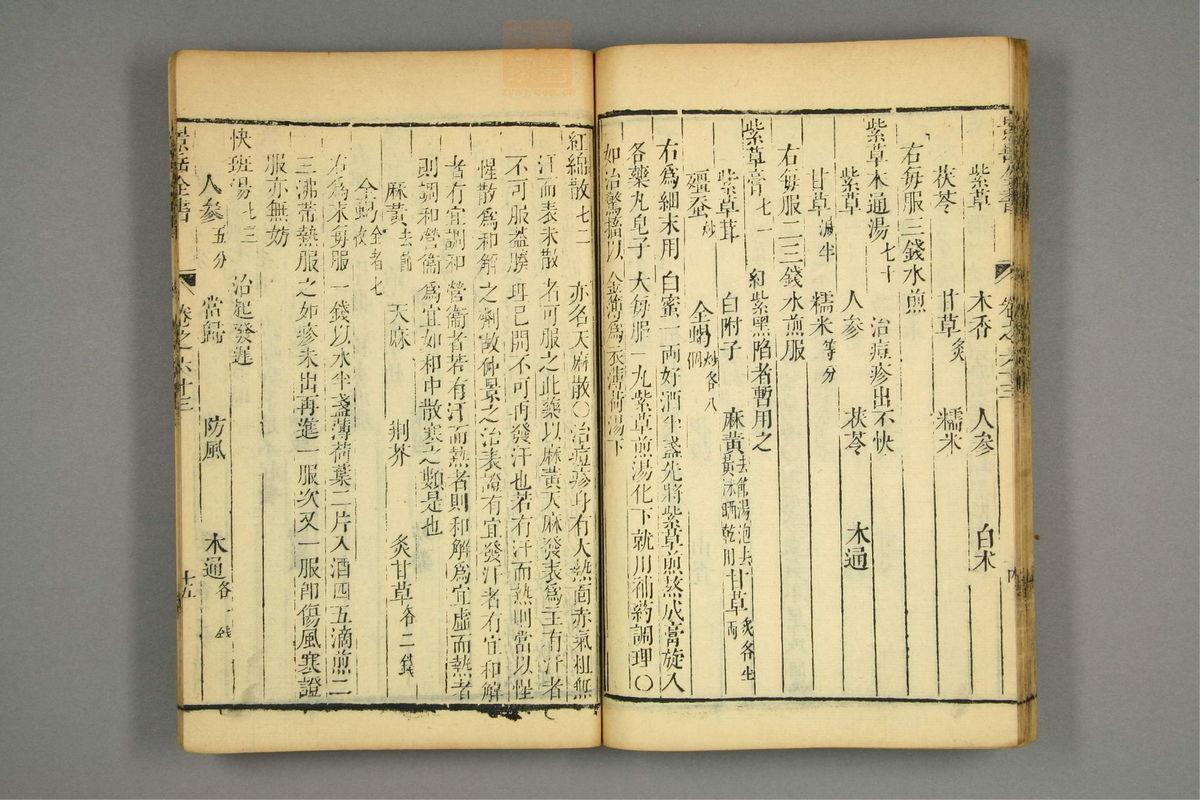 紫草 木香 人參 白术
茯苓 甘草炙 糯米
右每服三錢水煎
紫草木通湯七十 治痘疹出不快
紫草 人參 茯苓 木通
甘草減半 糯米等分
右每服二三錢水煎服
紫草膏七一 紅紫黑陷者暫用之
紫草茸 白附子 麻黃去節湯泡去黃沫晒乾用 甘草炙各半兩
殭蚕炒 全蝎炒各八個
右為細末用白蜜一兩好酒半盞先將紫草煎熬成膏旋入
各藥丸皂子大每服一丸紫草煎湯化下就用補藥調理○
如治驚搐以金箔為衣薄荷湯下
景岳全書 卷之六十三 十五
紅綿散七二 亦名天麻散○治痘疹身有大熱面赤氣粗無
汗而表未散者可服之此藥以麻黃天麻發表為主有汗者
不可服蓋腠理已開不可再發汗也若有汗而熱則當以惺
惺散為和解之劑故仲景之治表證有宜發汗者有宜和解
者有宜調和營衞者若有汗而熱者則和解為宜虛而熱者
則調和營衞為宜如和中散寒之類是也
麻黃去節 天麻 荆芥 炙甘草各二錢
全蝎全者七枚
右為末每服一錢以水半盞薄荷葉二片入酒四五滴煎二
三沸帶熱服之如疹未出再進一服次又一服即傷風寒證
服亦無妨
快班湯七三 治起發遲
人參五分 當歸 防風 木通各一錢